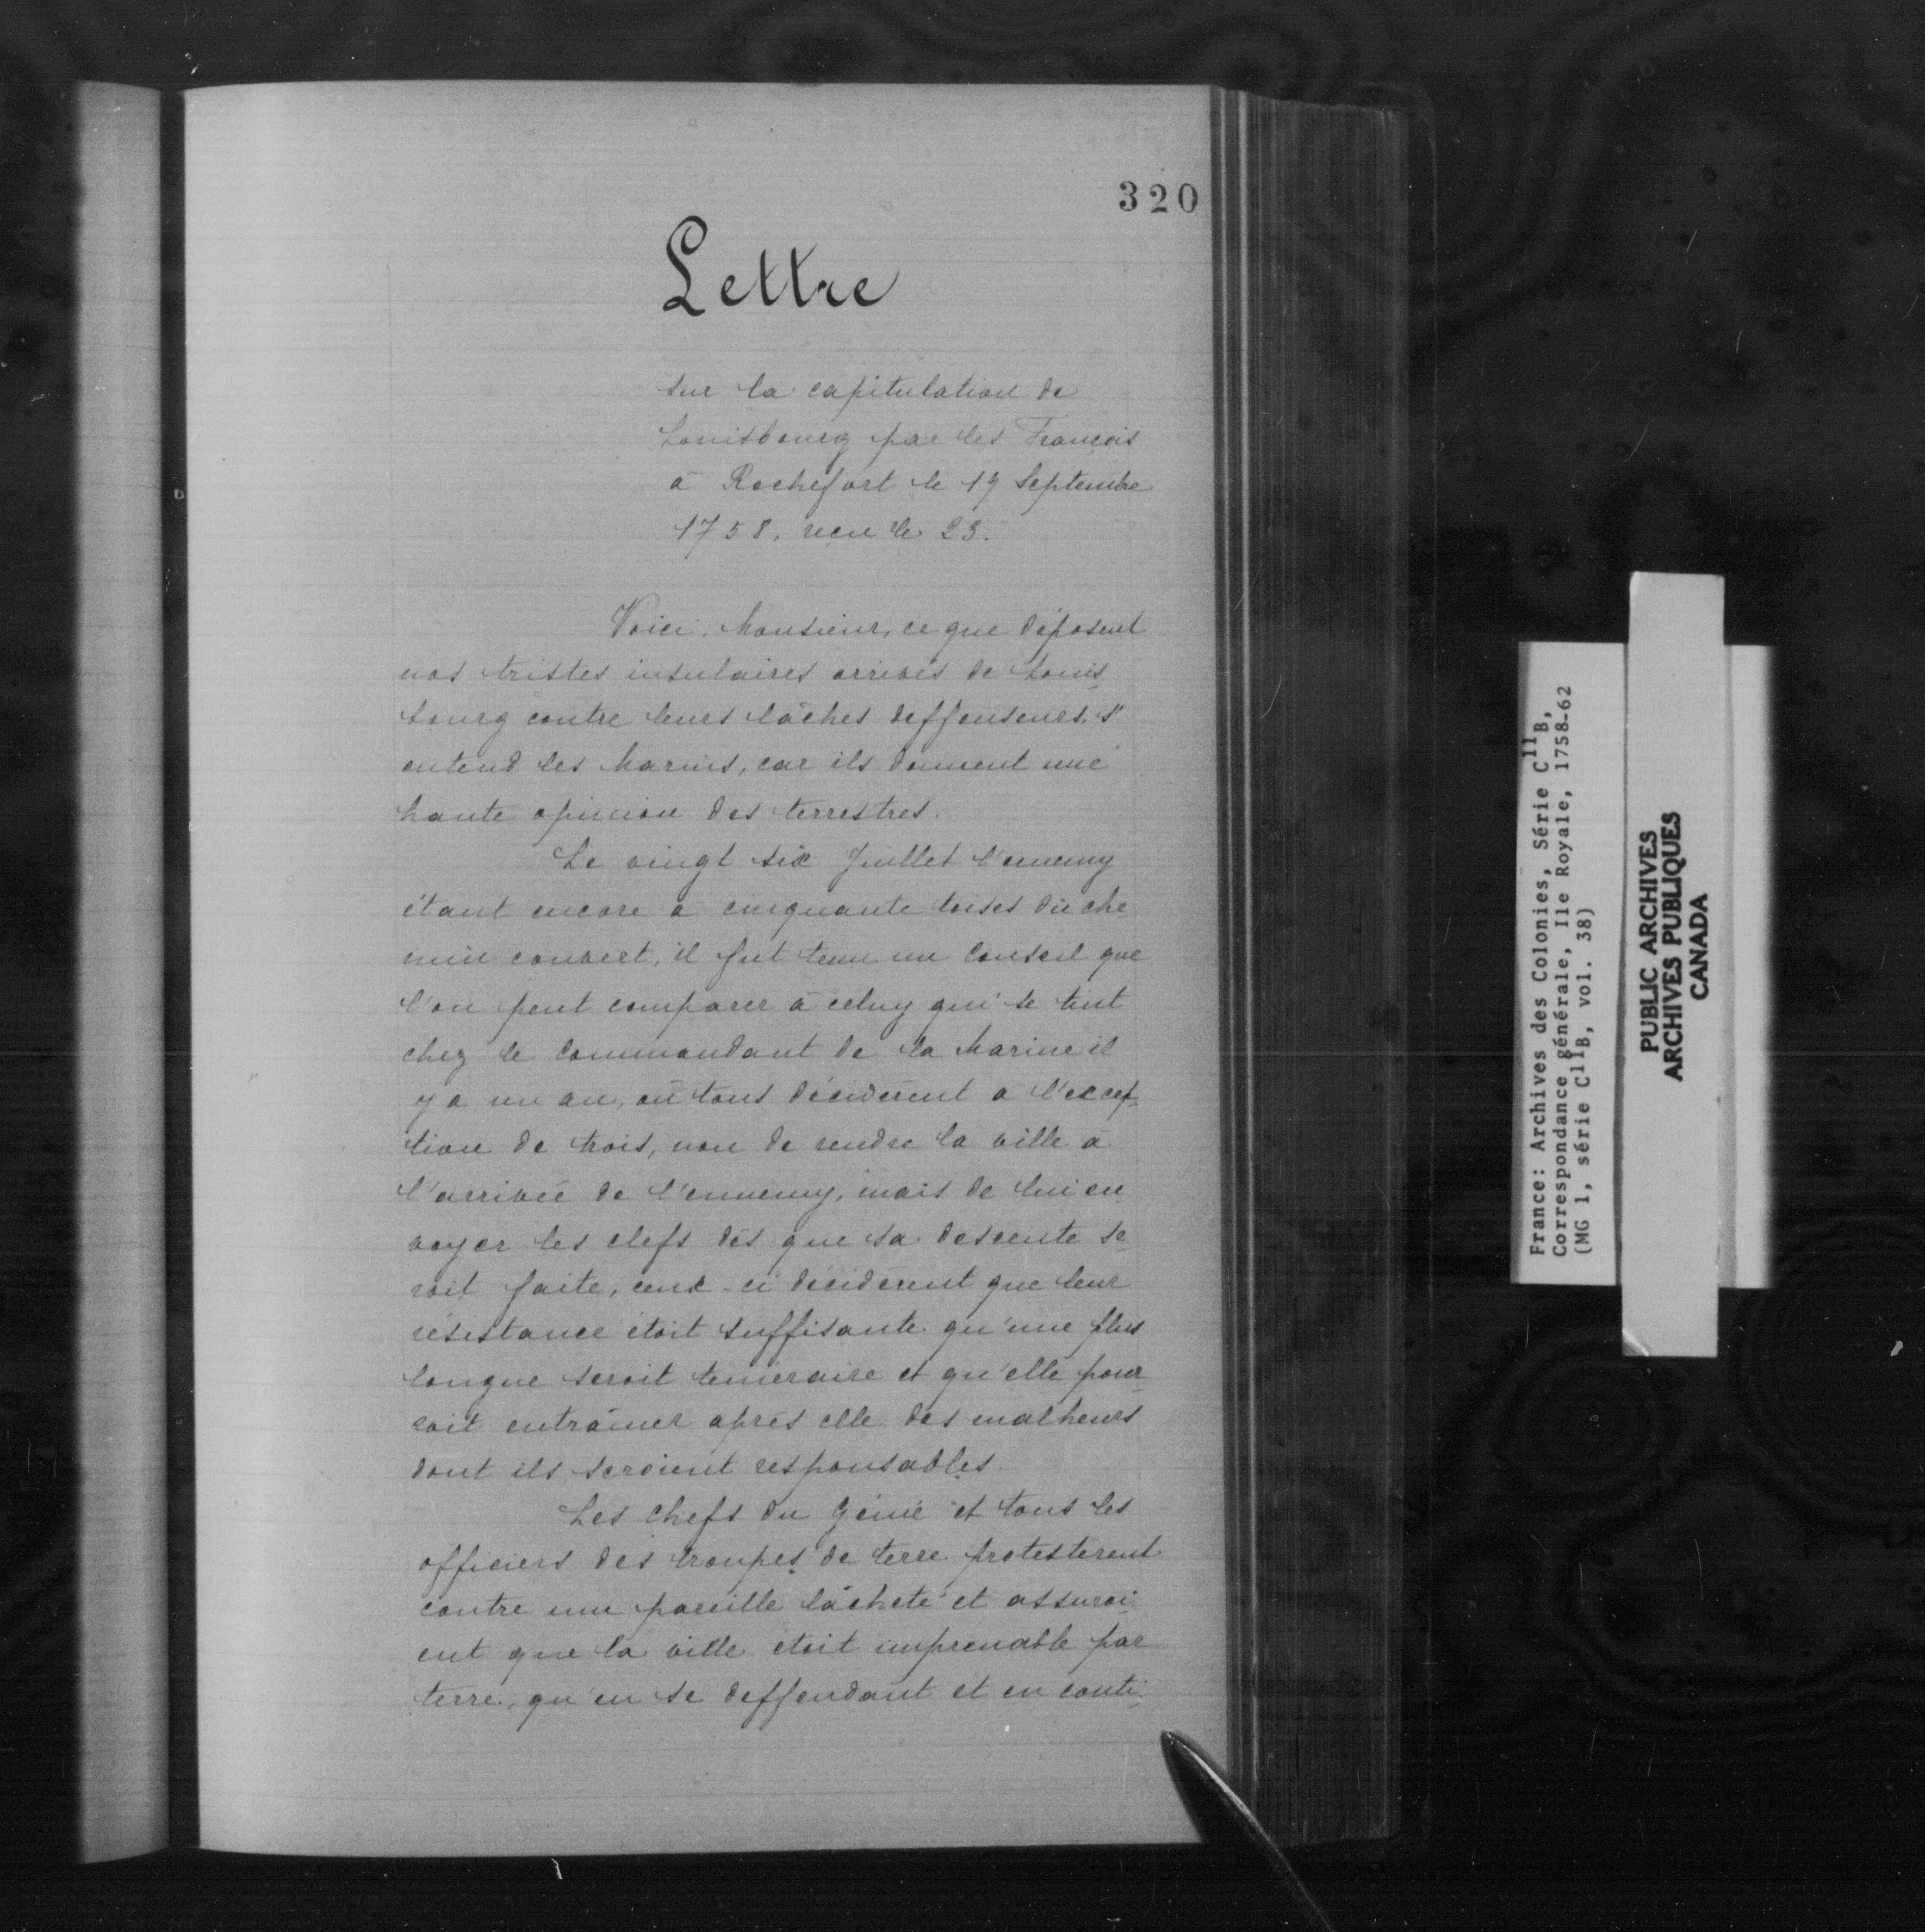 320
Lettre
sur la capitulation de
Louisbourg par les François
à Rochefort le 19 Septembre
1758, recu le 23.
Voici, Monsieur, ce que déposent
nos tristes insulaires arrivés de Louis
bourg contre leurs lâches deffenseurs, s'
entend les Marins, car ils donnent une
haute opinion des terrestres.
Le vingt six Juillet l'ennemy
étant encore à cinquante toises du che
min couvert, il fut tenu un Conseil que
l'on peut comparer à celuy qui se tint
chez le Commandant de la Marine il
y a un an, où tous décidèrent à l'excep
tion de trois, non de rendre la ville à
l'arrivée de l'ennemy, mais de lui en
voyer les clefs dès que sa descente se
roit faite, ceux-ci décidèrent que leur
résistance étoit suffisante qu'une plus
longue seroit téméraire et qu'elle pour
roit entraîner après elle des malheurs
dont ils seroient responsables.
Les chefs du Génie et tous les
officiers des troupes de terre protesterent
contre une pareille lâcheté et assuroi
ent que la ville étoit imprenable par
terre, qu'en se deffendant et en conti
France: Archives des Colonies, Série C11B,
Correspondance générale, Ile Royale, 1758-62
(MG 1, série C11B, vol. 38)
PUBLIC ARCHIVES
ARCHIVES PUBLIQUES
CANADA